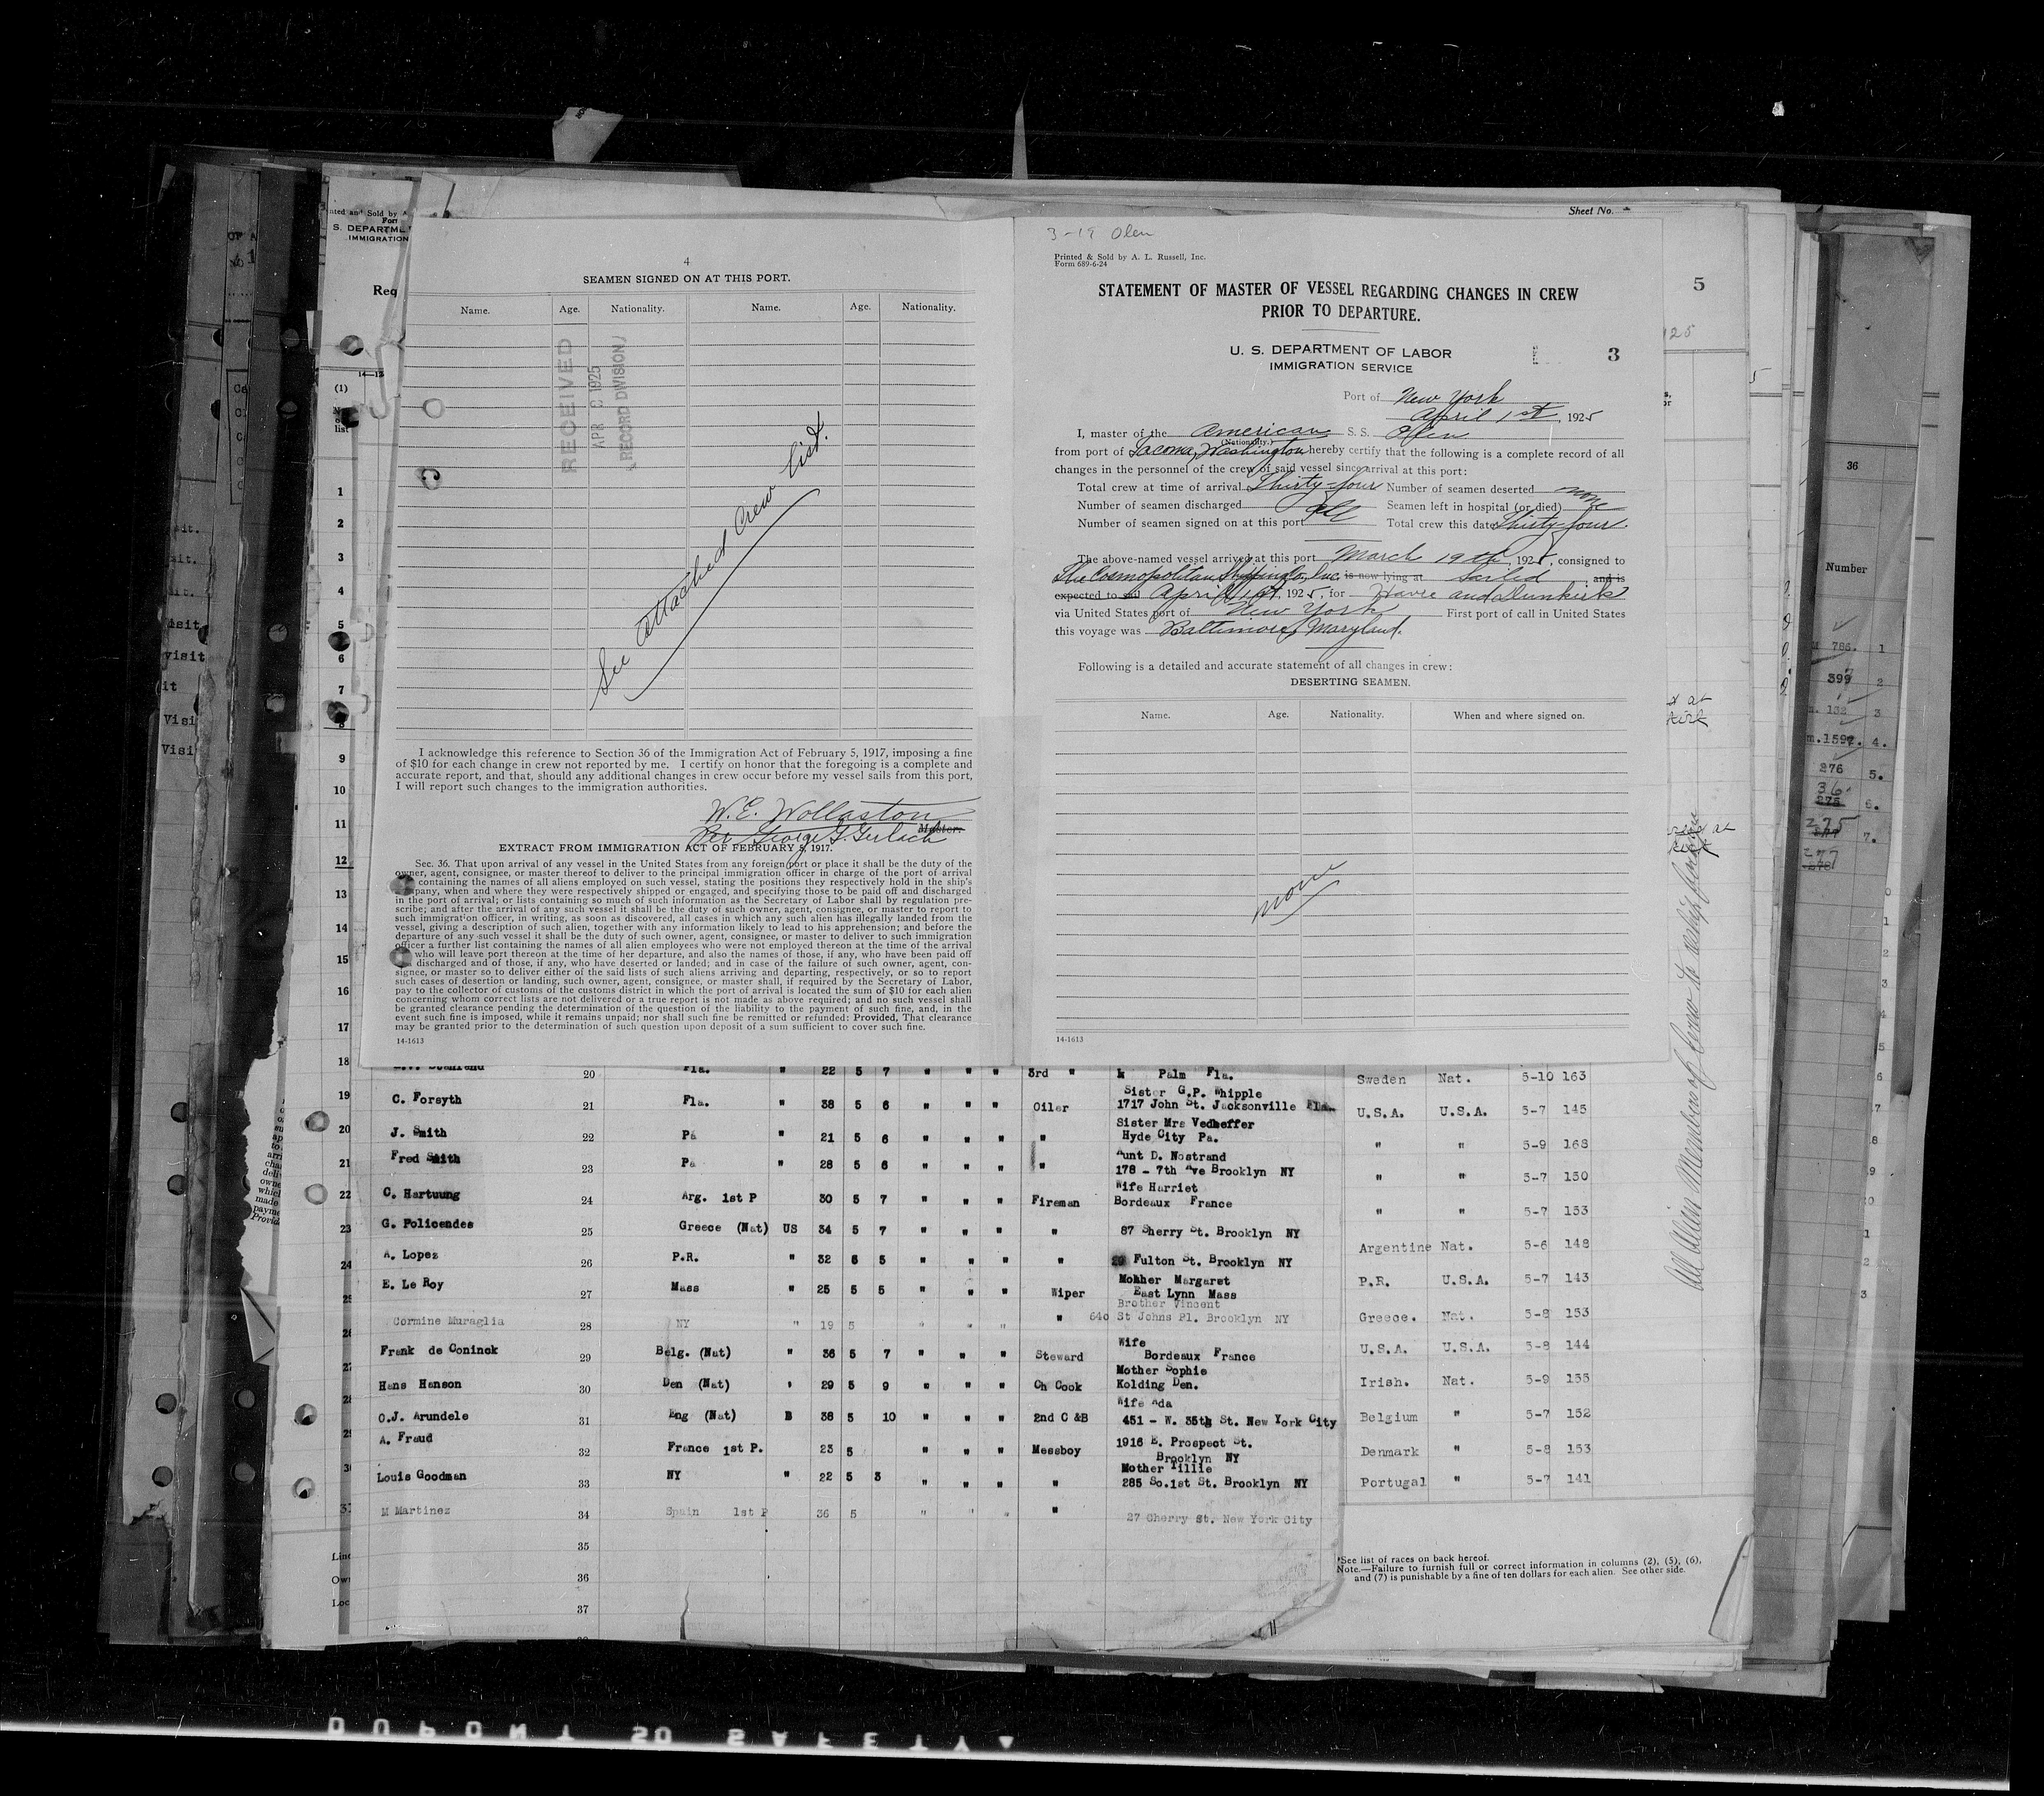 Sheet No.
4
SEAMEN SIGNED ON AT THIS PORT.
Name. Age. Nationality. Name. Age. Nationality.
RECEIVED
APR 1925
RECORD DIVISION
See attached Crew list.
I acknowledge this reference to Section 36 of the Immigration Act of February 5, 1917, imposing a fine
of $10 for each change in crew not reported by me. I certify on honor that the foregoing is a complete and
accurate report, and that, should any additional changes in crew occur before my vessel sails from this port,
I will report such changes to the immigration authorities.
W. E. Wollaston
Per George G. Gerlach Master.
EXTRACT FROM IMMIGRATION ACT OF FEBRUARY 5, 1917.
Sec. 36. That upon arrival of any vessel in the United States from any foreign port or place it shall be the duty of the
owner, agent, consignee, or master thereof to deliver to the principal immigration officer in charge of the port of arrival
containing the names of all aliens employed on such vessel, stating the positions they respectively hold in the ship's
pany, when and where they were respectively shipped or engaged, and specifying those to be paid off and discharged
in the port of arrival; or lists containing so much of such information as the Secretary of Labor shall by regulation pre-
scribe; and after the arrival of any such vessel it shall be the duty of such owner, agent, consignee, or master to report to
such immigration officer, in writing, as soon as discovered, all cases in which any such alien has illegally landed from the
vessel, giving a description of such alien, together with any information likely to lead to his apprehension; and before the
departure of any such vessel it shall be the duty of such owner, agent, consignee, or master to deliver to such immigration
officer a further list containing the names of all alien employees who were not employed thereon at the time of the arrival
who will leave port thereon at the time of her departure, and also the names of those, if any, who have been paid off
discharged and of those, if any, who have deserted or landed; and in case of the failure of such owner, agent, con-
signee, or master so to deliver either of the said lists of such aliens arriving and departing, respectively, or so to report
such cases of desertion or landing, such owner, agent, consignee, or master shall, if required by the Secretary of Labor,
pay to the collector of customs of the customs district in which the port of arrival is located the sum of $10 for each alien
concerning whom correct lists are not delivered or a true report is not made as above required; and no such vessel shall
be granted clearance pending the determination of the question of the liability to the payment of such fine, and, in the
event such fine is imposed, while it remains unpaid; nor shall such fine be remitted or refunded: Provided, That clearance
may be granted prior to the determination of such question upon deposit of a sum sufficient to cover such fine.
14-1613
3-19 Olen
Printed & Sold by A. L. Russell, Inc.
Form 689-6-24
STATEMENT OF MASTER OF VESSEL REGARDING CHANGES IN CREW
PRIOR TO DEPARTURE.
U. S. DEPARTMENT OF LABOR
IMMIGRATION SERVICE
3
Port of New York
April 1st, 1925
I, master of the American S. S. Olen
(Nationality.)
from port of Tacoma, Washington hereby certify that the following is a complete record of all
changes in the personnel of the crew of said vessel since arrival at this port:
Total crew at time of arrival Thirty-four Number of seamen deserted none
Number of seamen discharged all Seamen left in hospital (or died) none
Number of seamen signed on at this port Total crew this date Thirty-four.
The above-named vessel arrived at this port March 19th, 1925, consigned to
The Cosmopolitan Shipping Co, Inc. is now lying at Sailed and is
expected to sail April 1st, 1925, for Havre and Dunkirk
via United States port of New York First port of call in United States
this voyage was Baltimore, Maryland.
Following is a detailed and accurate statement of all changes in crew:
DESERTING SEAMEN.
Name. Age. Nationality. When and where signed on.
none
14-1613
5
36
Number
20 Fla. " 22 5 7 " " " 3rd " Palm Fla.
Sister G.P. Whipple
C. Forsyth 21 Fla. " 38 5 6 " " " Oiler 1717 John St. Jacksonville Fla.
Sister Mrs Vedheffer
J. Smith 22 Pa " 21 5 6 " " " " Hyde City Pa.
Aunt D. Nostrand
Fred Smith 23 Pa " 28 5 6 " " " " 178 - 7th Ave Brooklyn NY
Wife Harriet
C. Hartuung 24 Arg. 1st P 30 5 7 " " " Fireman Bordeaux France
G. Policendes 25 Greece (Nat) US 34 5 7 " " " " 87 Sherry St. Brooklyn NY
A. Lopez 26 P.R. " 32 5 5 " " " " Fulton St. Brooklyn NY
Mother Margaret
E. Le Roy 27 Mass " 25 5 5 " " " Wiper East Lynn Mass
Brother Vincent
Cormine Muraglia 28 NY " 19 5 " " " " 640 St Johns Pl. Brooklyn NY
Wife
Frank de Coninck 29 Belg. (Nat) " 36 5 7 " " " Steward Bordeaux France
Mother Sophie
Hans Hanson 30 Den (Nat) " 29 5 9 " " " Ch Cook Kolding Den.
Wife Ada
O.J. Arundele 31 Eng (Nat) B 38 5 10 " " " 2nd C &B 451 - W. 35th St. New York City
A. Fraud 32 France 1st P. 23 5 " " " Messboy 1916 E. Prospect St.
Brooklyn NY
Mother Tillie
Louis Goodman 33 NY " 22 5 3 " " " " 285 So.1st St. Brooklyn NY
M Martinez 34 Spain 1st P 36 5 " " " " 27 Sherry St. New York City
35
36
37
Sweden Nat. 5-10 163
U.S.A. U.S.A. 5-7 145
" " 5-9 168
" " 5-7 150
" " 5-7 153
Argentine Nat. 5-6 148
P.R. U.S.A. 5-7 143
Greece. Nat. 5-8 153
U.S.A. U.S.A. 5-8 144
Irish. Nat. 5-9 155
Belgium " 5-7 152
Denmark " 5-8 153
Portugal " 5-7 141
*See list of races on back hereof.
Note.—Failure to furnish full or correct information in columns (2), (5), (6),
and (7) is punishable by a fine of ten dollars for each alien. See other side.
DUPONT SO SAFETY